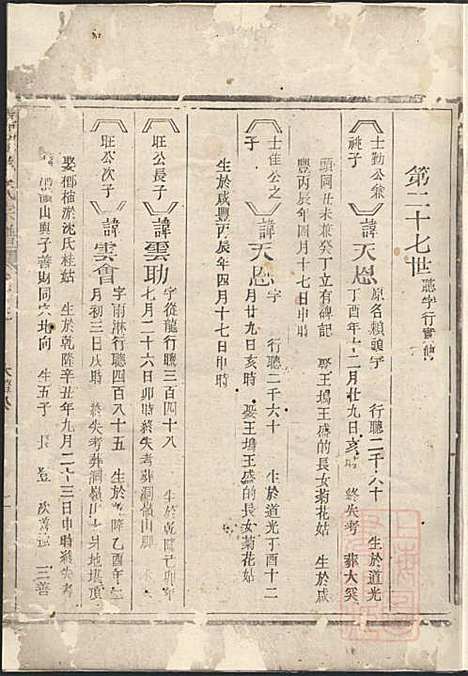 第二十七世 聽字行實傳
士勤公兼祧子 諱天恩 原名賴頭字 行聽二千六十 生於道光
丁酉年十二月廿九日亥時 終失考 葬大
頭岡丑未兼癸丁立有碑記 娶王塢王盛的長女菊花姑 生於咸
豐丙辰年四月十七日申時
士佳公之子 諱天恩 字 行聽二千六十 生於道光丁酉十二
月廿九日亥時 娶王塢王盛的長女菊花姑
生於咸豐丙辰年四月十七日申時
旺公長子 諱雲助 字從龍行聽三百四十八 生於乾隆己卯年
七月二十六日卯時終失考葬洞嶺山
旺公次子 諱雲會 字雨淋行聽四百八十五 生於乾隆乙酉年
月初三日戌時 終失考葬洞嶺山 地墳頂
娶 楠淤沈氏桂姑 生於乾隆辛丑年九月二十三日申時終失考
山與子善財同穴 向 生五子 長 登 次善 三善